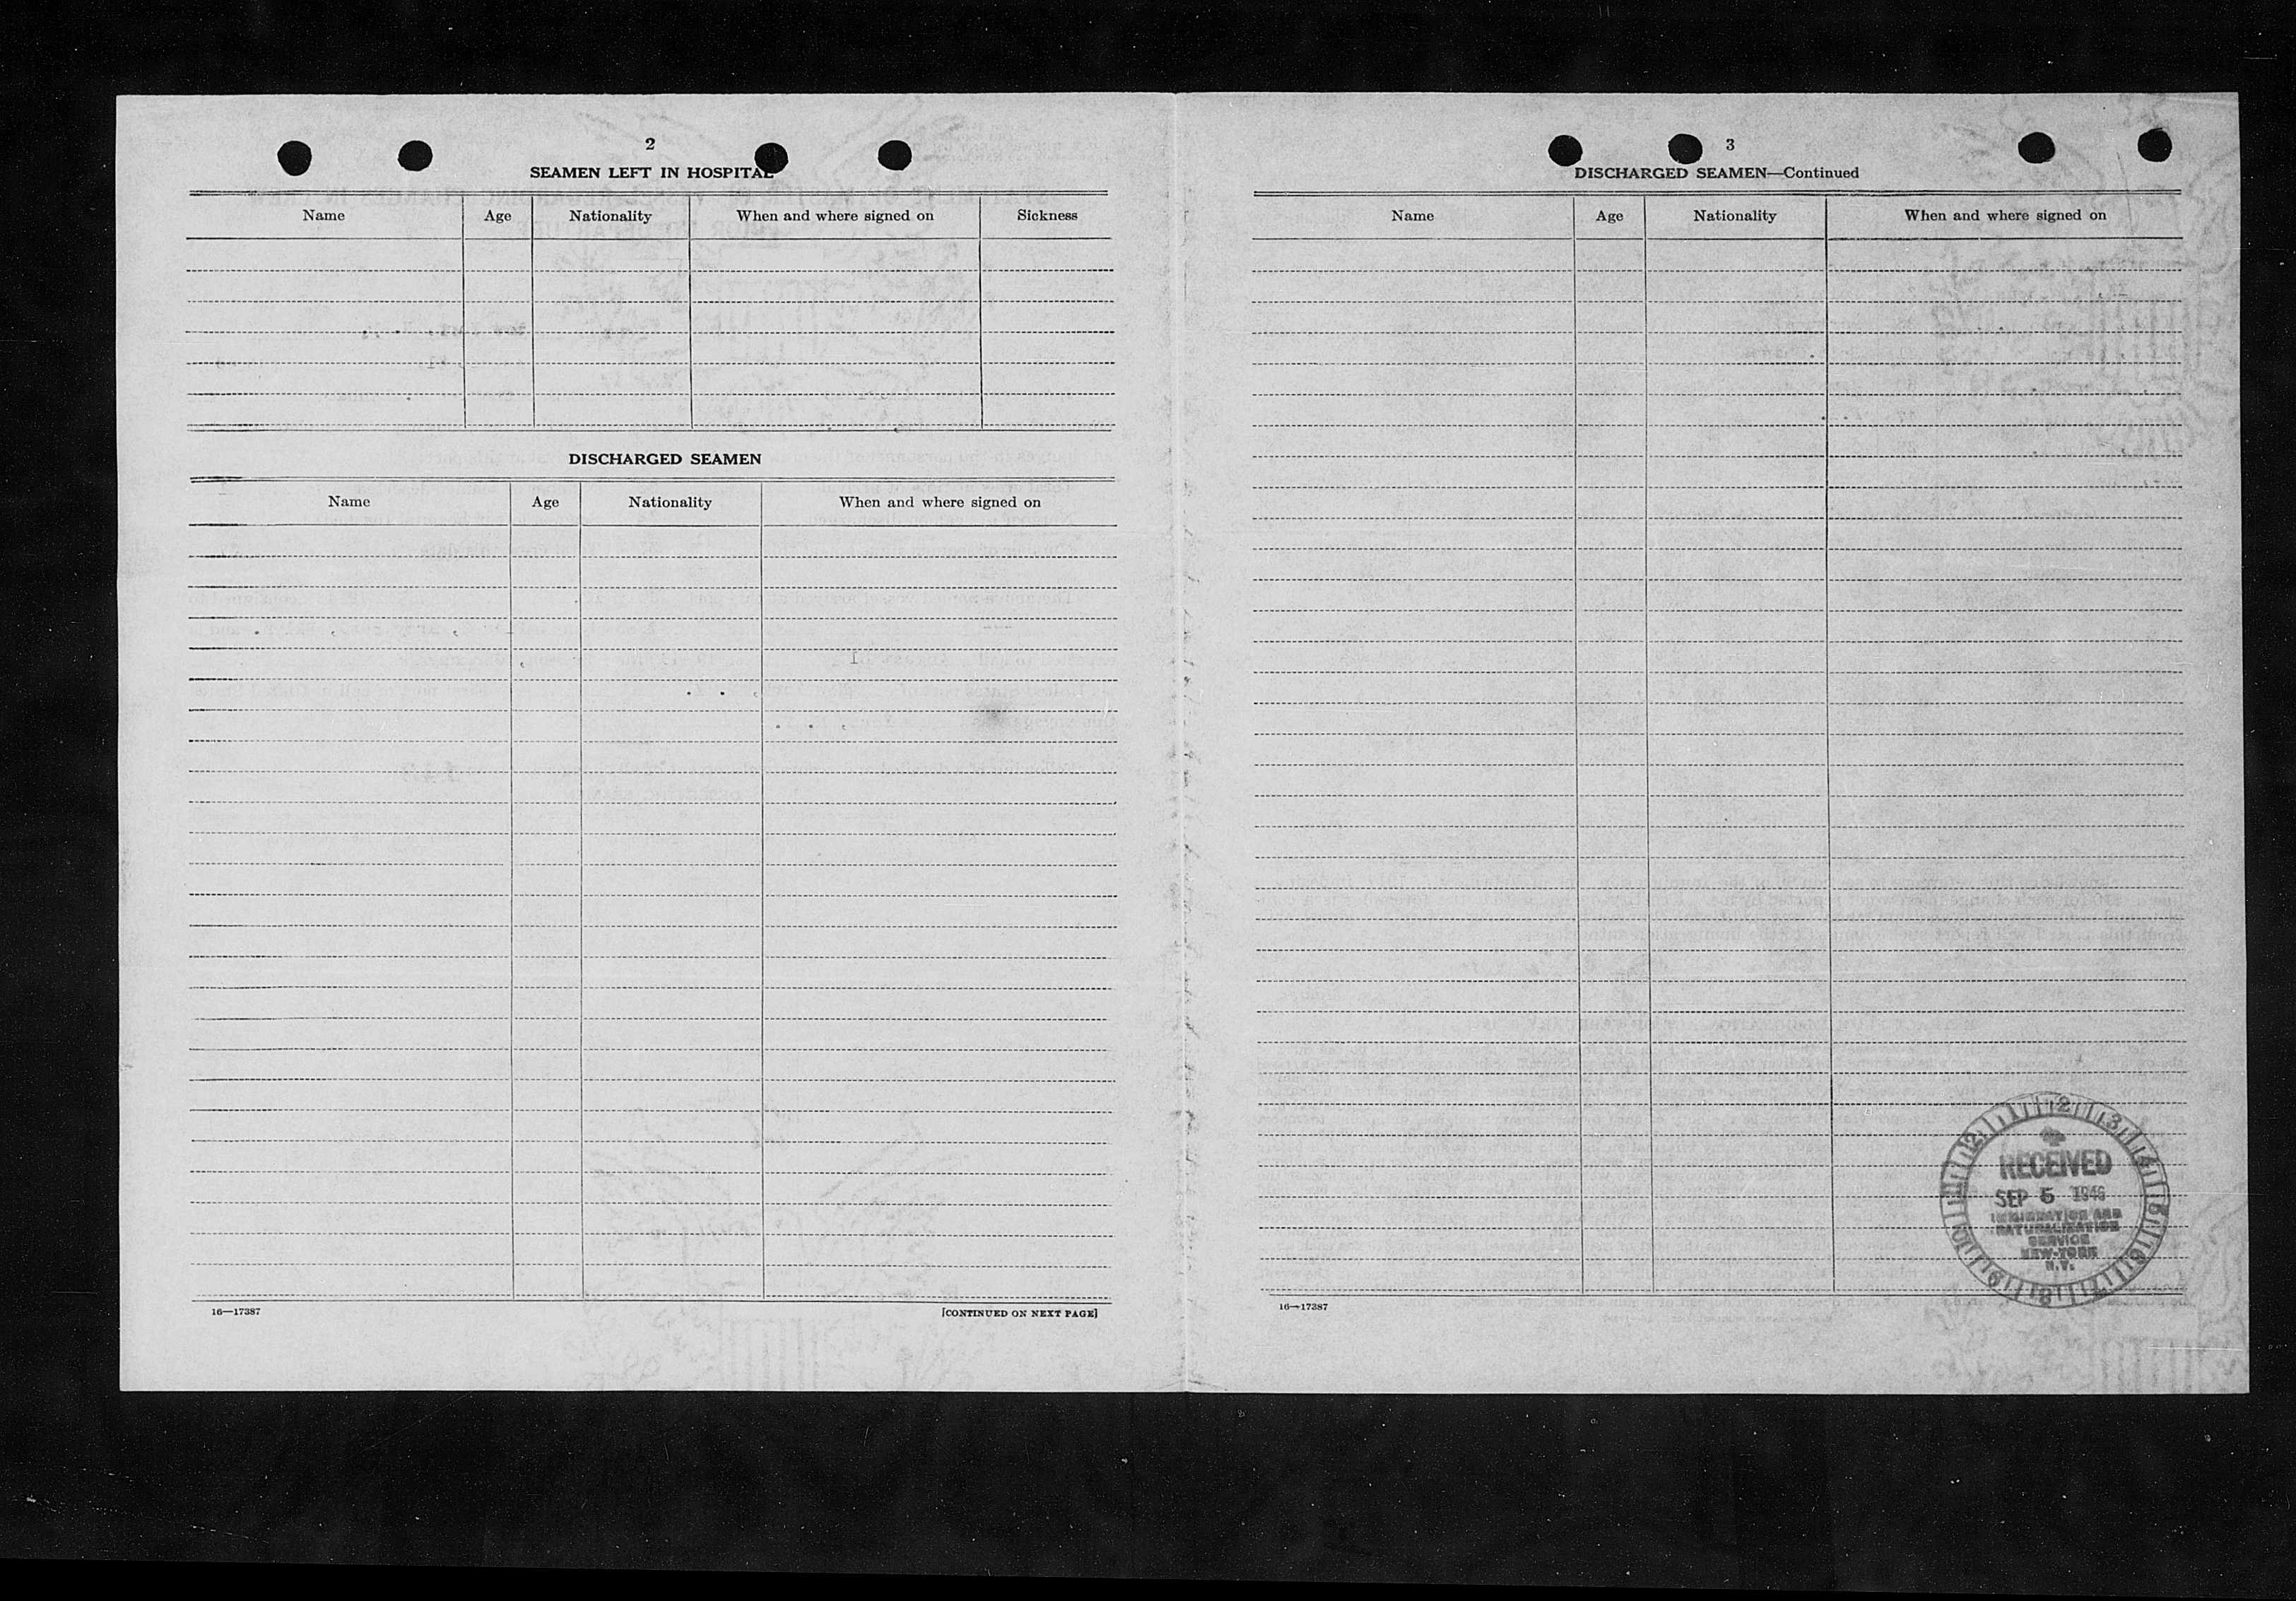 2
SEAMEN LEFT IN HOSPITAL
Name Age Nationality When and where signed on Sickness
DISCHARGED SEAMEN
Name Age Nationality When and where signed on
16—17387 [CONTINUED ON NEXT PAGE]
3
DISCHARGED SEAMEN—Continued
Name Age Nationality When and where signed on
12 1 2 3 4 5 6 7 8 9 10 11
RECEIVED
SEP 5 1946
IMMIGRATION AND
NATURALIZATION
SERVICE
NEW-YORK
N.Y.
16—17387